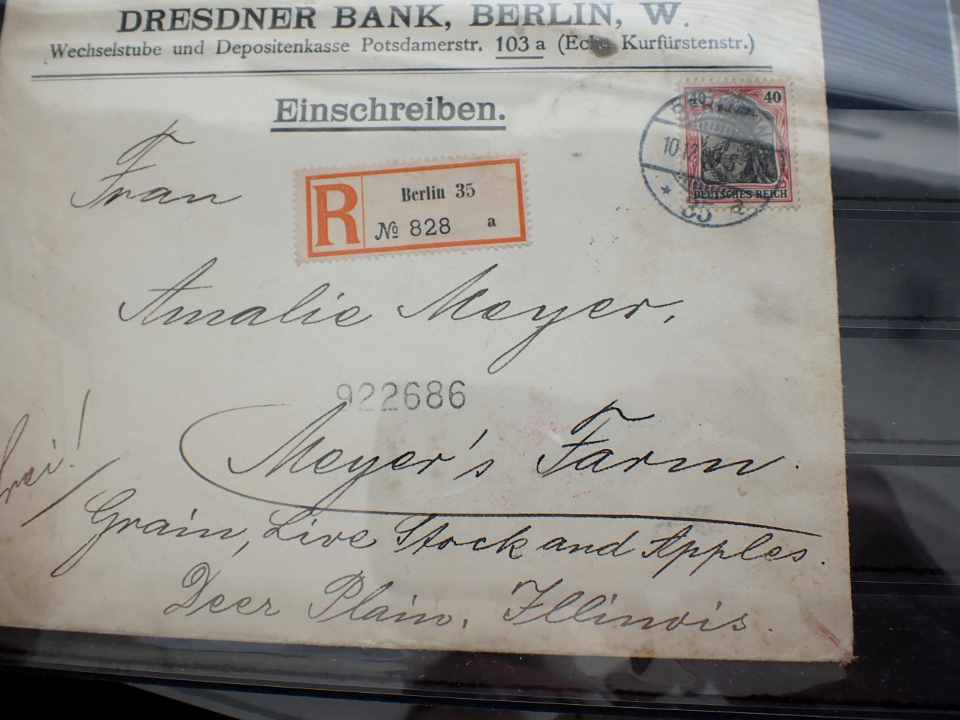 DRESDNER BANK, BERLIN, W.
Wechselstube und Depositenkasse Potsdamerstr. 103 a (Ecke Kurfürstenstr.)
Einschreiben.
40 40
DEUTSCHES REICH
10.12
35 a
R Berlin 35
№ 828 a
Frau
Amalie Meyer,
922686
Meyer's Farm.
Grain, Live Stock and Apples.
Deer Plain, Illinois.
frei!